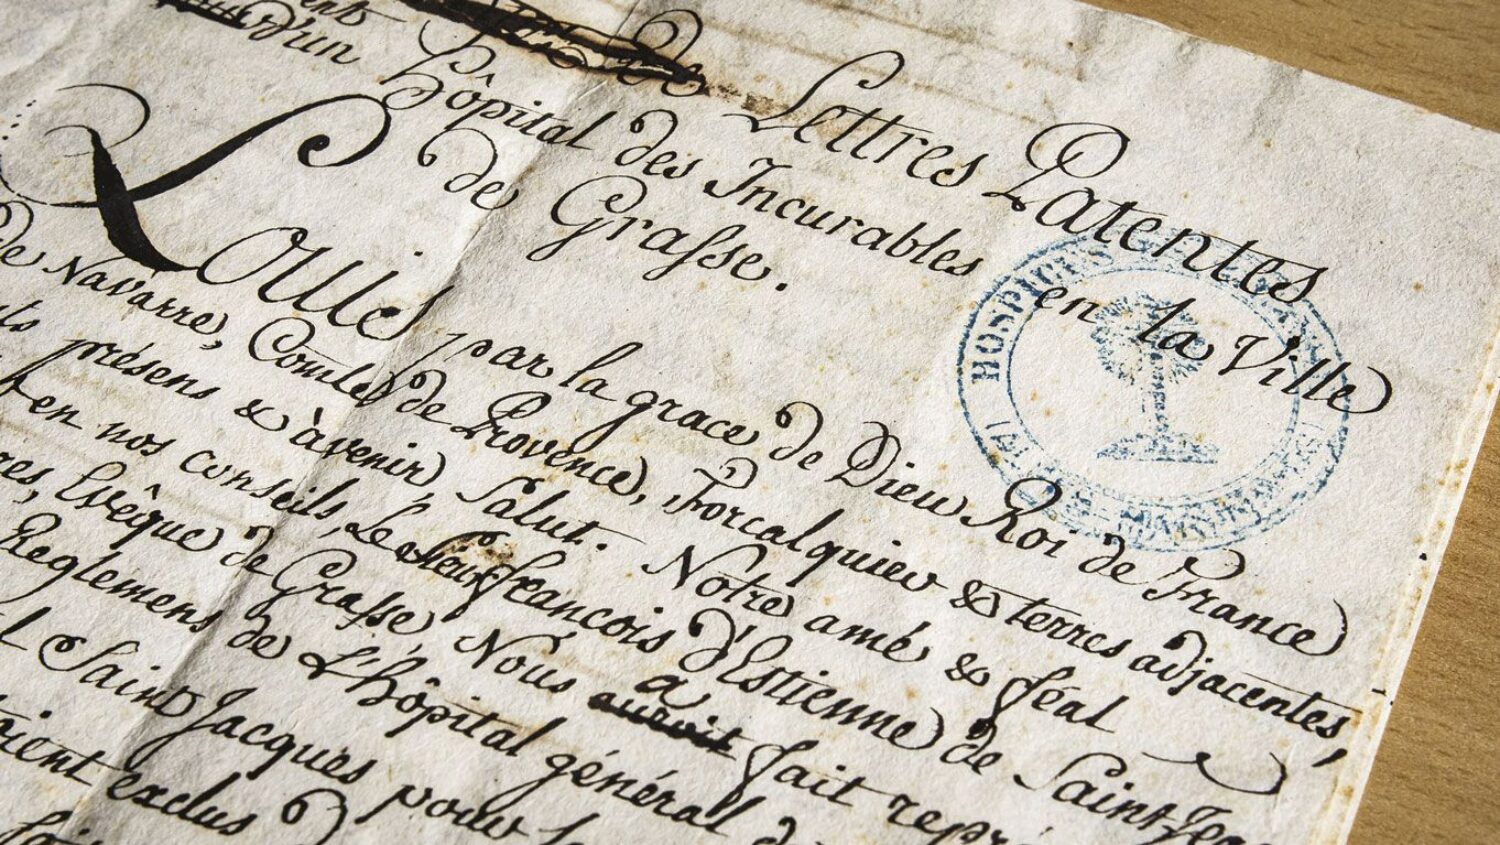 de Lettres Patentes
ent d'un hôpital des Incurables en la Ville
de Grasse.
Louis par la grace de Dieu Roi de France
de Navarre, Comte de Provence, Forcalquier & terres adjacentes,
présens & àvenir, Salut. Notre amé & féal
en nos conseils, Le Sieur françois d'Estienne de Saint Jea
res, Evêque de Grasse, Nous a fait repré
Reglemens de L'hôpital général d
Saint Jacques pour l
oient exclus
HOSPICES